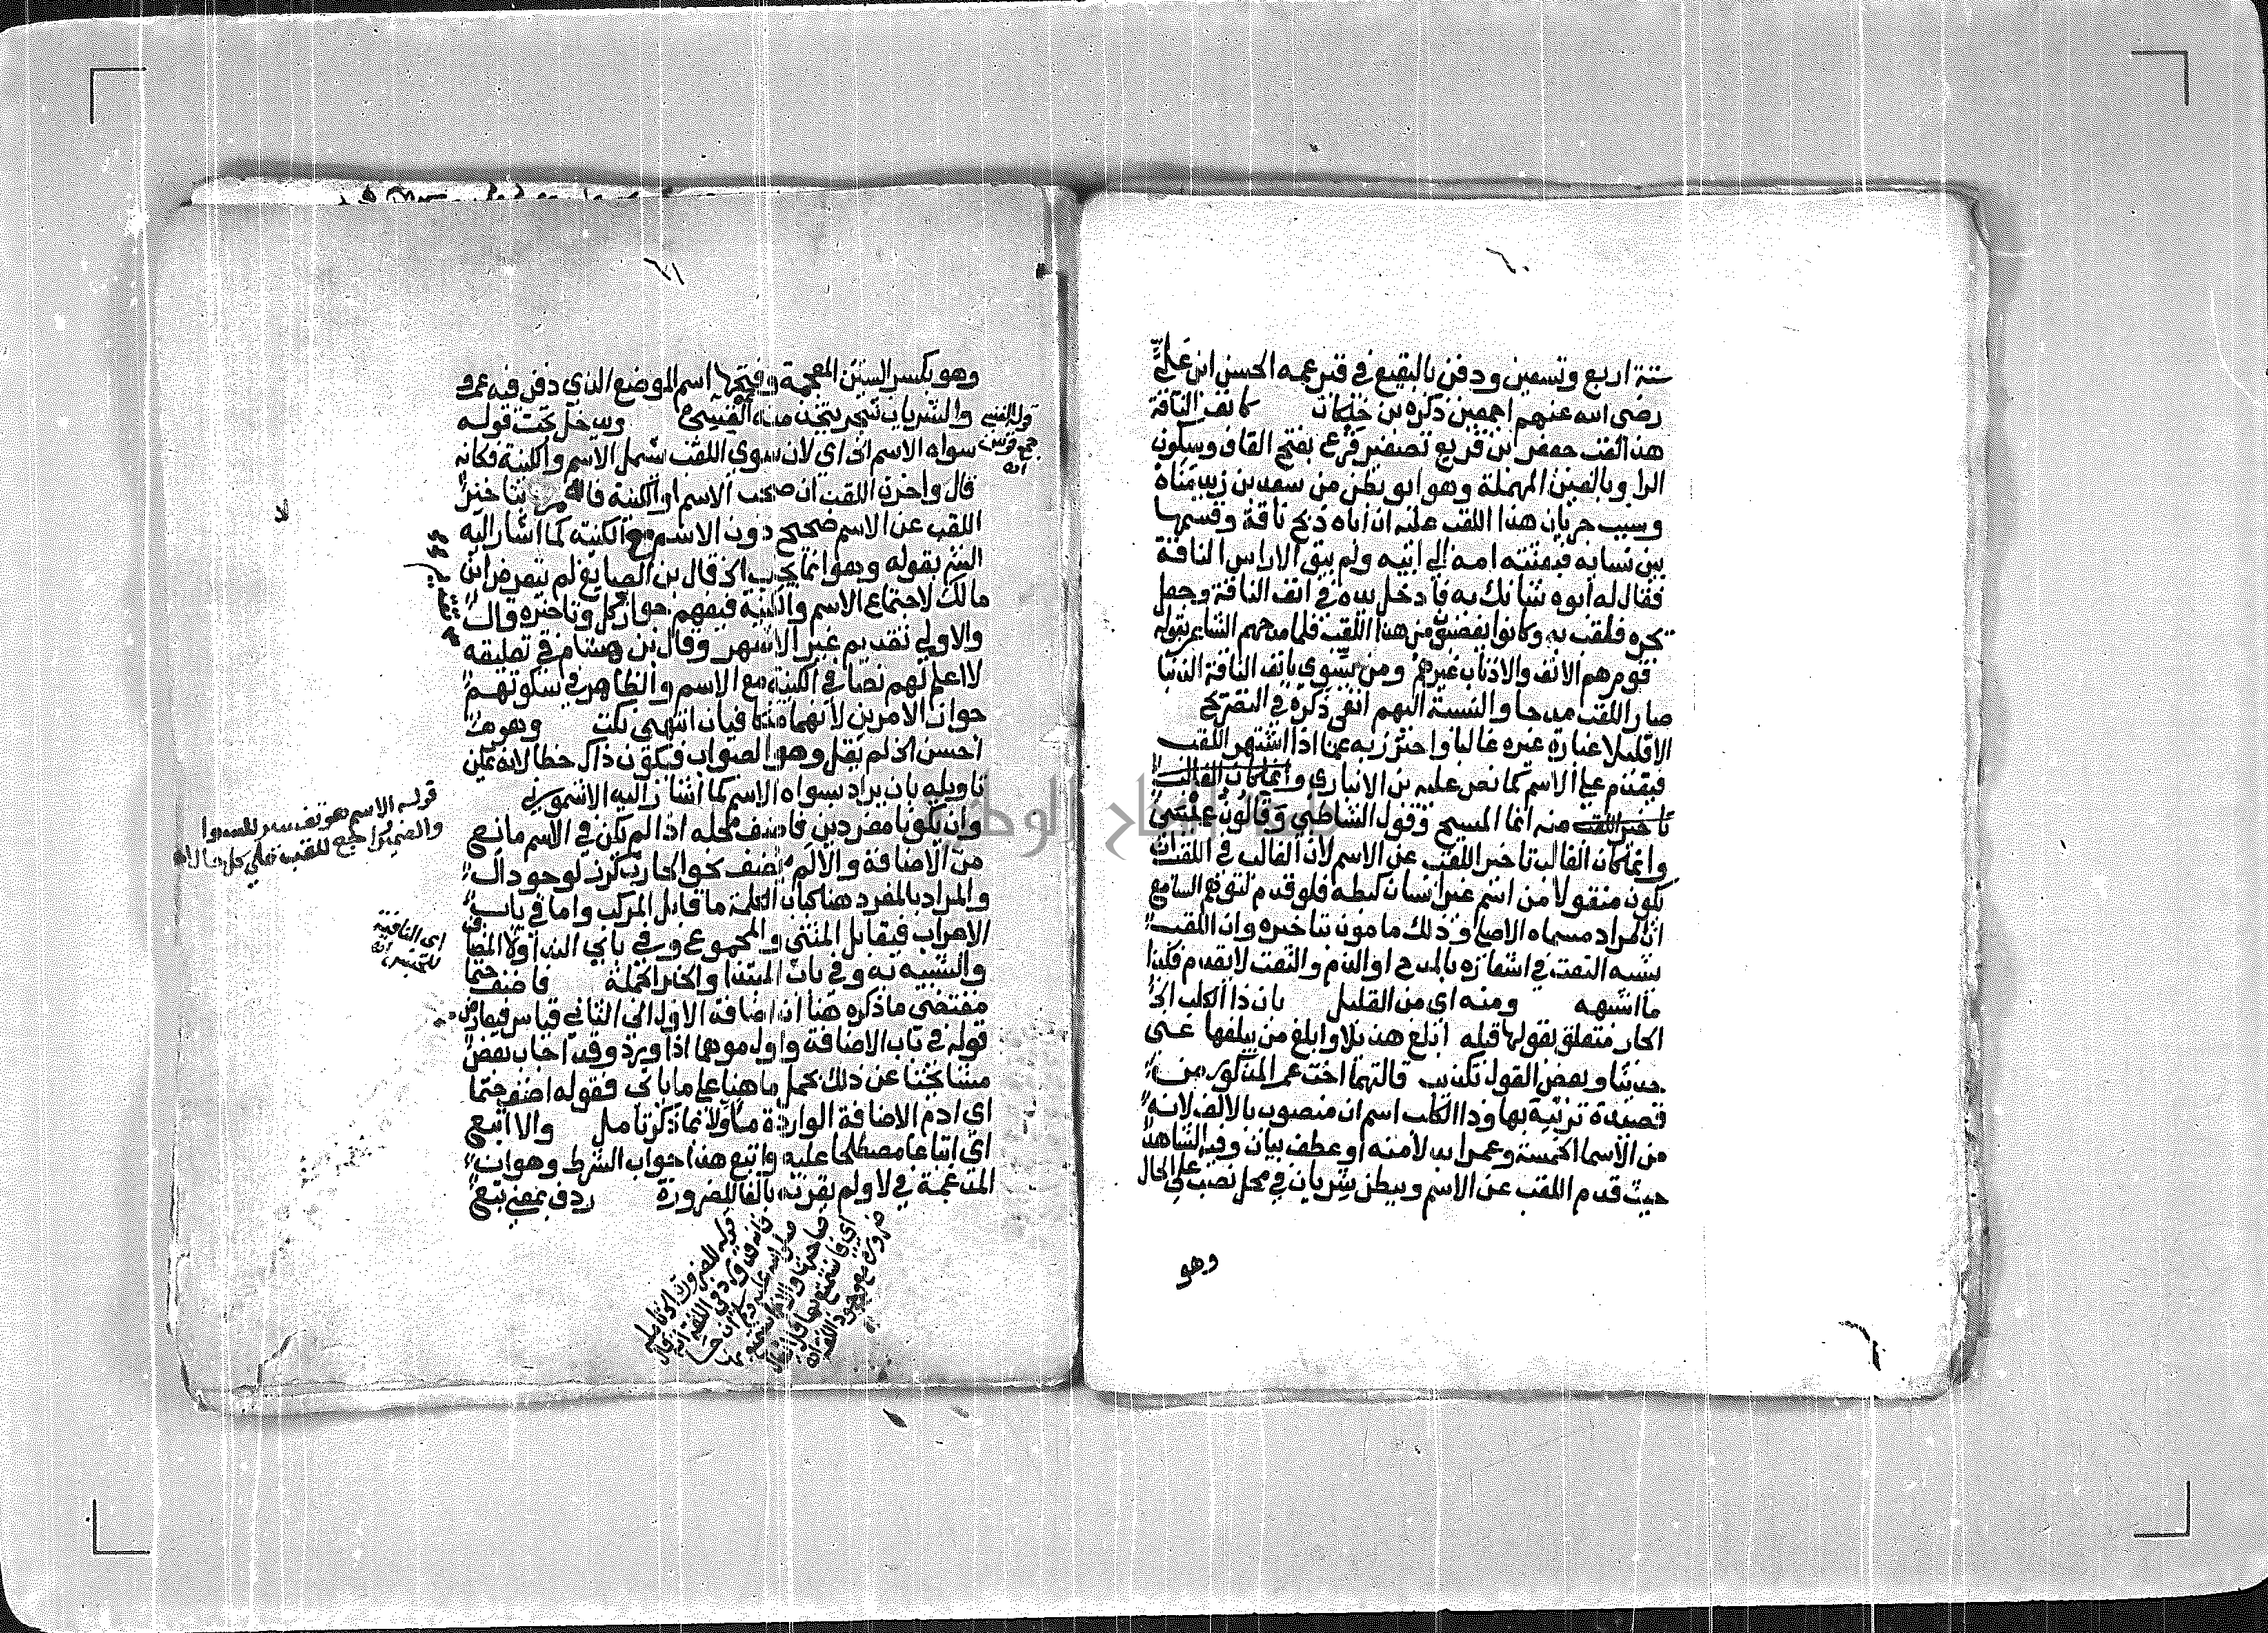 ٦٠
سنة اربع وتسعين ودفن بالبقيع في قبر عمه الحسن ابن علي
رضى الله عنهم اجمعين ذكره بن خلكان كانف الناقة
هذا لقب جعفر ابن قريع تصغير قرع بفتح القاف وسكون
الرا وبالعين المهملة وهو ابو بطن من سعد بن زيد مناة
وسبب جريان هذا اللقب عليه ان اباه ذبح ناقة وقسمها
بين نسايه فبعثته امه الي ابيه ولم يبق الا راس الناقة
فقال له ابوه شانك به فادخل يده في انف الناقة وجعل
يجره فلقب به وكانوا يغضبون من هذا اللقب فلما مدحهم الشاعر بقوله
قوم هم الانف والاذناب غيرهم ومن يسوي بانف الناقة الذنبا
صار اللقب مدحا والنسبة اليهم انفي ذكره في التصريح
الا قليلا عبارة غيره غالبا واحترز به عما اذا اشتهر اللقب
فيقدم علي الاسم كما نص عليه بن الانباري وانما كان الغالب
تاخير اللقب منه انما المسيح وقول الشاطبي وقالون عيسى
وانما كان الغالب تاخير اللقب عن الاسم لان الغالب في اللقب ان
يكون منقولا من اسم غير انسان كبطه فلو قدم لتوهم السامع
ان المراد مسماه الاصلي وذلك مامون بتاخيره وان اللقب
يشبه النعت في اشعاره بالمدح او الذم والنعت لا يقدم فكذا
ما اشبهه ومنه اي من القليل بان ذا الكلب الخ
الجار متعلق بقولها قبله ابلغ هذيلا وابلغ من يبلغها عني
حديثا وبعض القول تكذيب قالتهما اخت عمر المذكور من
قصيدة ترثيه بها وذا الكلب اسم ان منصوب بالالف لانه
من الاسما الخمسة وعمرا بدلا منه او عطف بيان وفيه الشاهد
حيث قدم اللقب عن الاسم وببطن شريان في محل نصب علي الحال
وهو
٦١
وهو بكسر الشين المعجمة وفتحها اسم الموضع الذي دفن فيه عمرو
والشرياب شجر يتخذ منه القسي ويدخل تحت قوله
سواه الاسم الخ اي لان سوي اللقب يشمل الاسم والكنية فكانه
قال واخرن اللقب ان صحب الاسم او الكنية فالامر بتاخير
اللقب عن الاسم صحيح دون الاسم مع الكنية كما اشار اليه
الش بقوله وهو انما يجب الخ قال بن الصايغ لم يتعرض ابن
مالك لاجتماع الاسم والكنية فيفهم جواز كل وتاخيره وقال
والاولي تقديم غير الاشهر وقال بن هشام في تعليقه
لا اعلم لهم نصا في الكنية مع الاسم والظاهر في سكوتهم
جواز الامرين لانهما متكافيان انتهي نكت وهو
احسن الخ لم يقل وهو الصواب فيكون ذاك خطا لانه يمكن
تاويله بان يراد بسواه الاسم كما اشار اليه الاشموني
وان يكونا مفردين فاضف محله اذا لم يكن في الاسم مانع
من الاضافة والا لم يضف نحو الحارث كرز لوجود ال
والمراد بالمفرد هنا كباب العلمية ما قابل المركب واما في باب
الاعراب فيقابل المثني والمجموع وفي بابي الندا ولا المضاف
والشبيه به وفي باب المبتدا والخبر الجملة فاضف حتما
مقتضي ما ذكره هنا ان اضافة الاول الي الثاني قياس
قوله في باب الاضافة واول موهما اذا ورد وقد اجاب بعض
مشايخنا عن ذلك بحمل ما هنا علي ما ياتي فقوله اضف حتما
اي ادم الاضافة الواردة مأولا بما ذكر تامل والا اتبع
اي اتباعا مصطلحا عليه واتبع هذا جواب الشرط وهو ان
المدغمة في لا ولم يقرنه بالفا للضرورة ردف بمعني تبع
قوله القسي
جمع قوس
اه
قوله الاسم هو تفسير لسوا
والضمير راجع للقب علي كل حال اه
اي النافية
للجنس اه